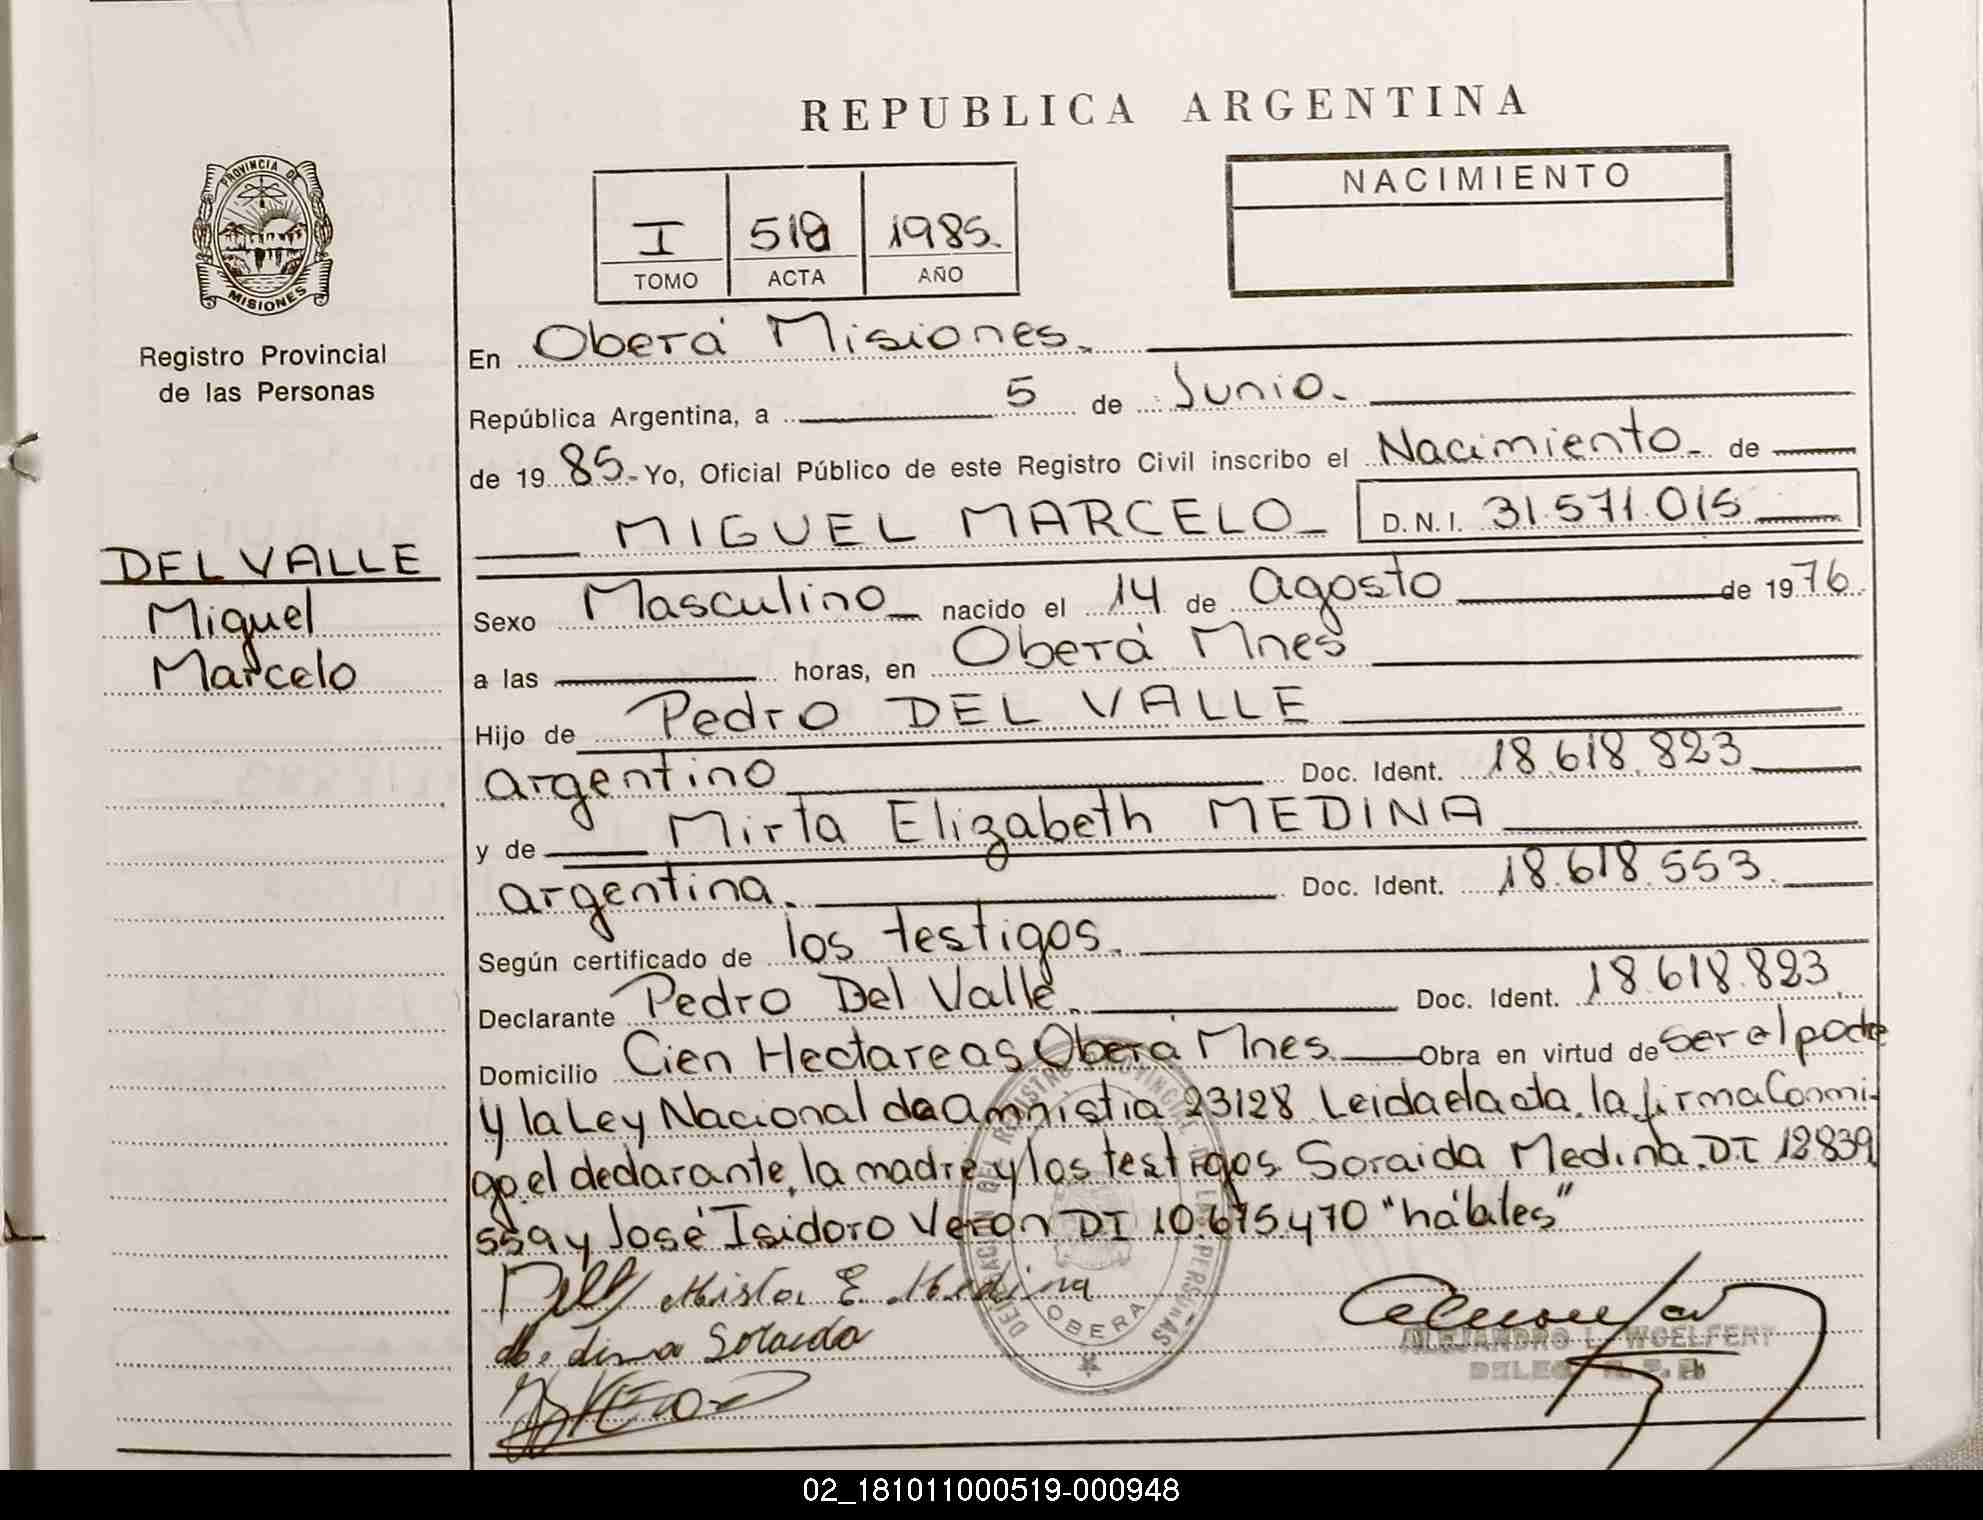 REPUBLICA ARGENTINA
PROVINCIA DE
MISIONES
Registro Provincial
de las Personas
I 519 1985.
TOMO ACTA AÑO
NACIMIENTO
En Oberá Misiones.
República Argentina, a 5 de Junio.
de 19 85.- Yo, Oficial Público de este Registro Civil inscribo el Nacimiento de
MIGUEL MARCELO D.N.I. 31.571.015
DEL VALLE
Miguel
Marcelo
Sexo Masculino nacido el 14 de Agosto de 1976.
a las horas, en Oberá Mnes
Hijo de Pedro DEL VALLE
argentino Doc. Ident. 18.618.823
y de Mirta Elizabeth MEDINA
argentina. Doc. Ident. 18.618.553.
Según certificado de los testigos.
Declarante Pedro Del Valle. Doc. Ident. 18.618.823
Domicilio Cien Hectareas Oberá Mnes. Obra en virtud de ser el padre
y la Ley Nacional de Amnistia 23128 Leida el acta, la firma Conmi-
go, el declarante, la madre y los testigos Soraida Medina. DI 12839
559 y José Isidoro Veron DI 10.675.470 "hábiles"
Mirta E. Medina
Medina Soraida
DELEGACION DEL REGISTRO PROVINCIAL DE LAS PERSONAS
OBERA
ALEJANDRO L. WOELFERT
02_181011000519-000948